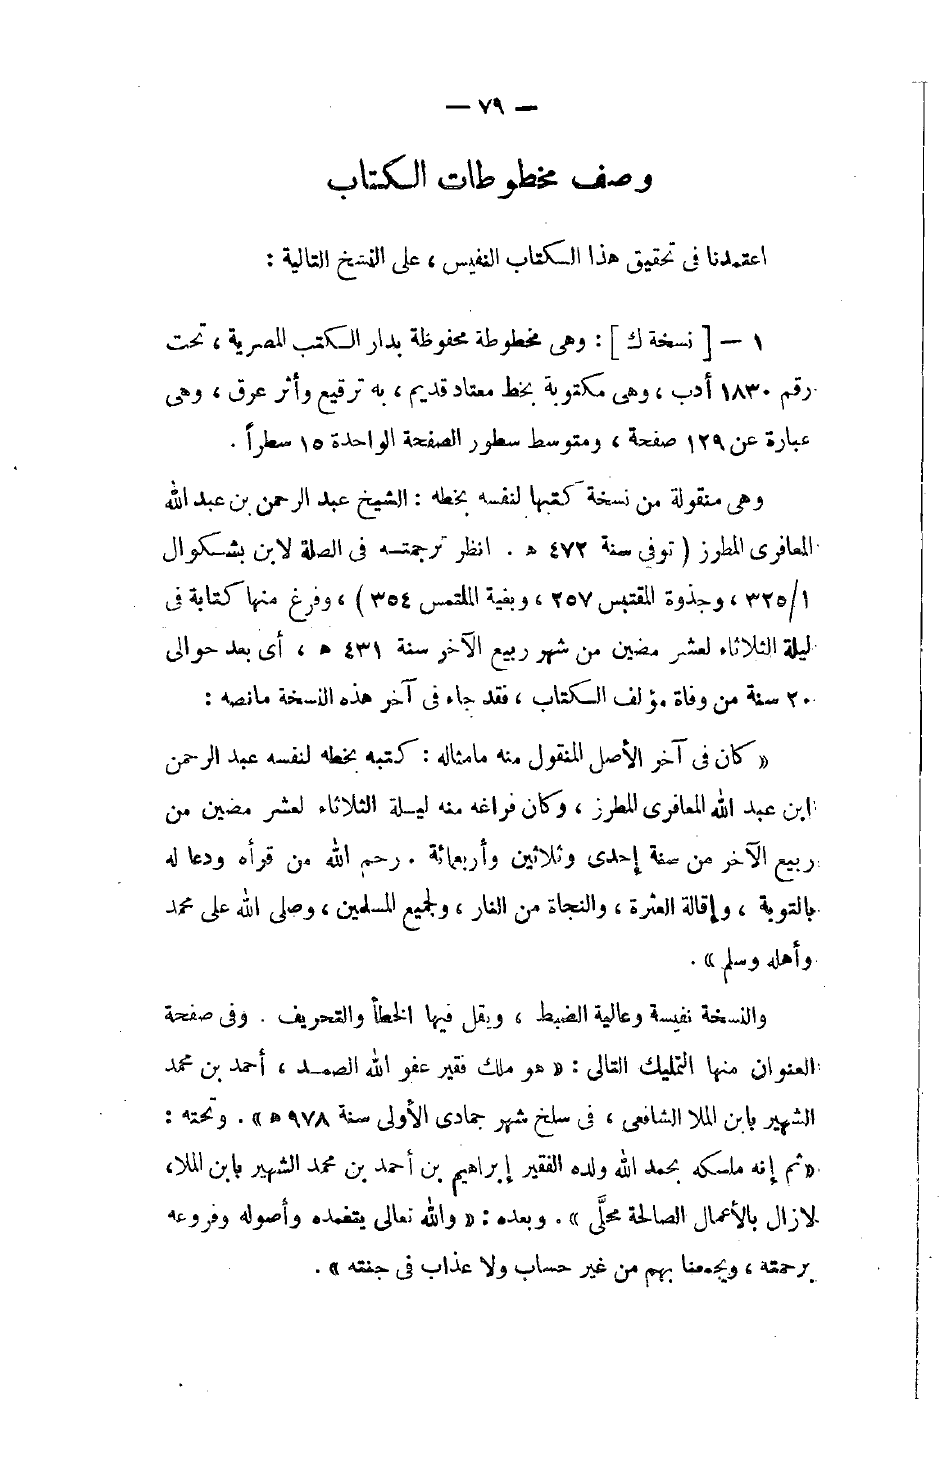 — ٧٩ —
وصف مخطوطات الكتاب
اعتمدنا فى تحقيق هذا الكتاب النفيس ، على النسخ التالية :
١ — [ نسخة ك ] : وهى مخطوطة محفوظة بدار الكتب المصرية ، تحت
رقم ١٨٣٠ أدب ، وهى مكتوبة بخط معتاد قديم ، به ترقيع وأثر عرق ، وهى
عبارة عن ١٢٩ صفحة ، ومتوسط سطور الصفحة الواحدة ١٥ سطراً .
وهى منقولة من نسخة كتبها لنفسه بخطه : الشيخ عبد الرحمن بن عبد الله
المعافرى المطرز ( توفى سنة ٤٧٢ ه . انظر ترجمته فى الصلة لابن بشكوال
٣٢٥/١ ، وجذوة المقتبس ٢٥٧ ، وبغية الملتمس ٣٥٤ ) ، وفرغ منها كتابة فى
ليلة الثلاثاء لعشر مضين من شهر ربيع الآخر سنة ٤٣١ ه ، أى بعد حوالى
٢٠ سنة من وفاة مؤلف الكتاب ، فقد جاء فى آخر هذه النسخة مانصه :
« كان فى آخر الأصل المنقول منه مامثاله : كتبه بخطه لنفسه عبد الرحمن
ابن عبد الله المعافرى المطرز ، وكان فراغه منه ليلة الثلاثاء لعشر مضين من
ربيع الآخر من سنة إحدى وثلاثين وأربعمائة . رحم الله من قرأه ودعا له
بالتوبة ، وإقالة العثرة ، والنجاة من النار ، ولجميع المسلمين ، وصلى الله على محمد
وأهله وسلم » .
والنسخة نفيسة وعالية الضبط ، ويقل فيها الخطأ والتحريف . وفى صفحة
العنوان منها التمليك التالى : « هو ملك فقير عفو الله الصمد ، أحمد بن محمد
الشهير بابن الملا الشافعى ، فى سلخ شهر جمادى الأولى سنة ٩٧٨ ه » . وتحته :
« ثم إنه ملكه بحمد الله ولده الفقير إبراهيم بن أحمد بن محمد الشهير بابن الملا ،
لازال بالأعمال الصالحة محلَّى » . وبعده : « والله تعالى يتغمده وأصوله وفروعه
برحمته ، ويجمعنا بهم من غير حساب ولا عذاب فى جنته » .